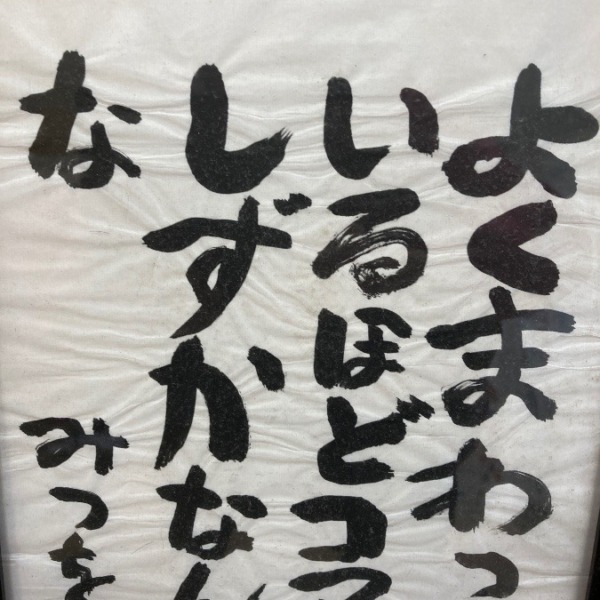 よくまわっ
いるほどコマ
しずかなん
な
みつを